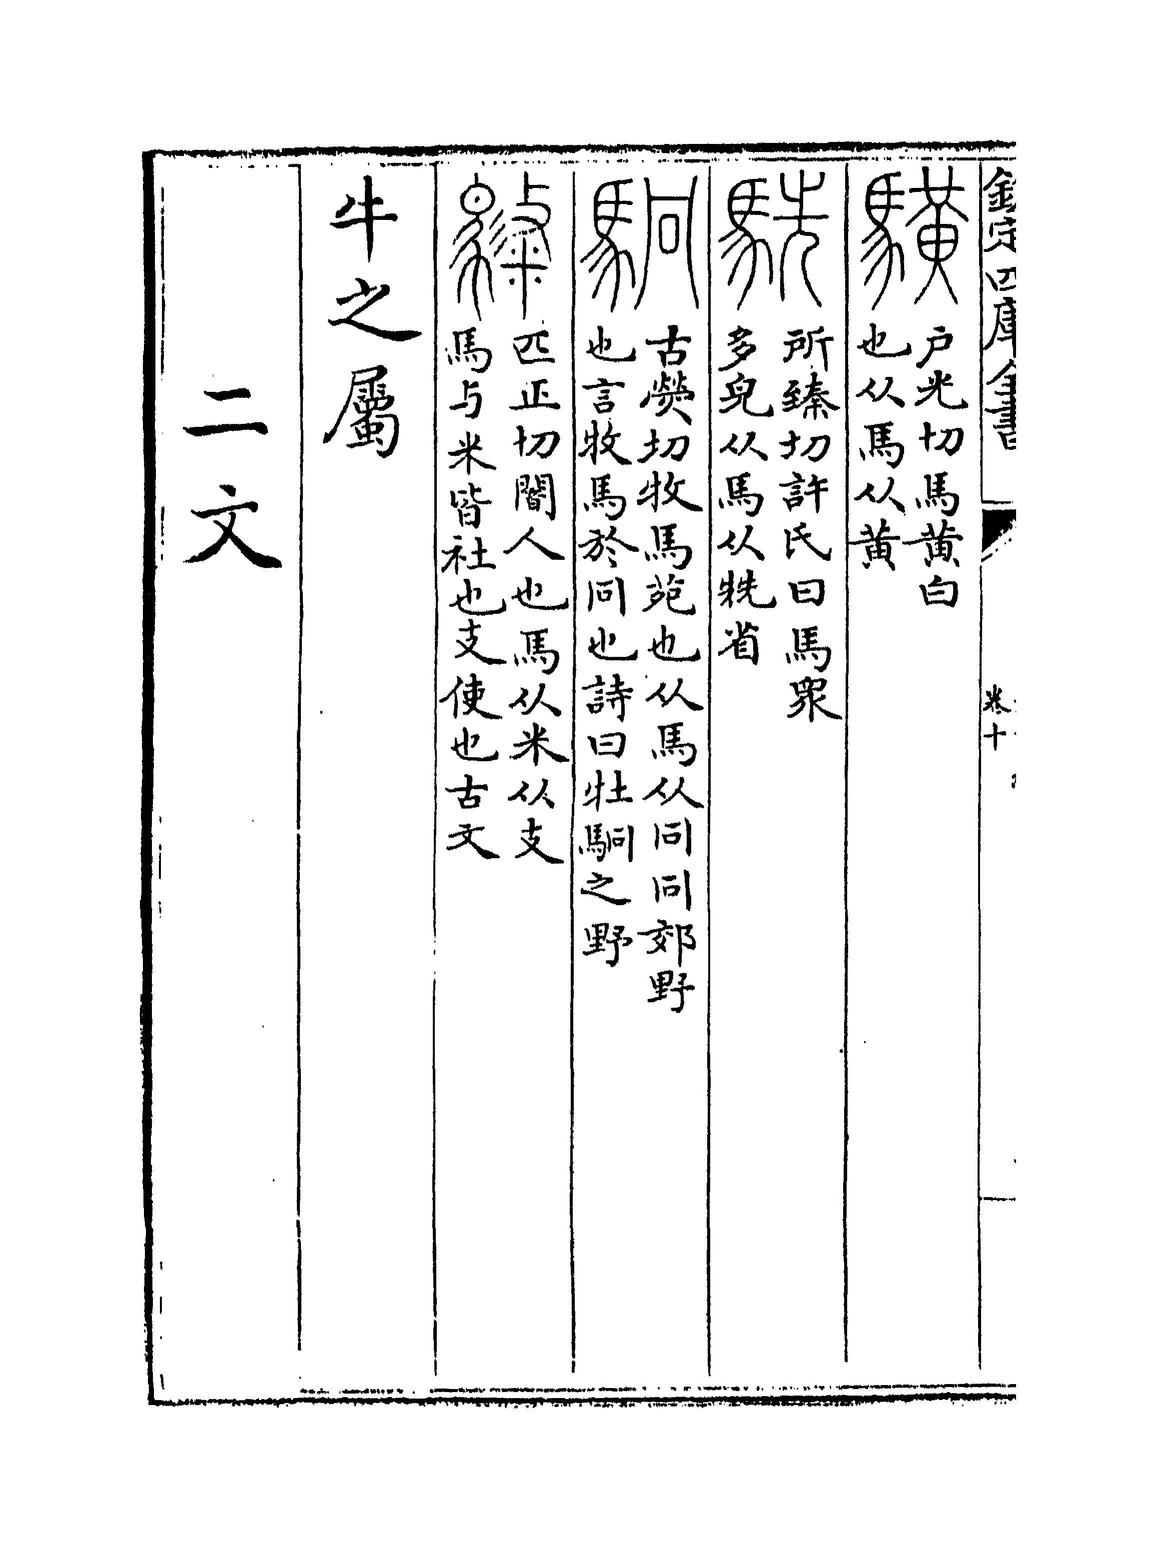 欽定四庫全書
卷十
䮲
户光切馬黄白
也从馬从黄
駪
所臻切許氏曰馬衆
多皃从馬从兟省
駉
古熒切牧馬苑也从馬从冋冋郊野
也言牧馬於冋也詩曰牡駉之野
匹正切閽人也馬从米从支
馬与米皆社也支使也古文
牛之屬
二文